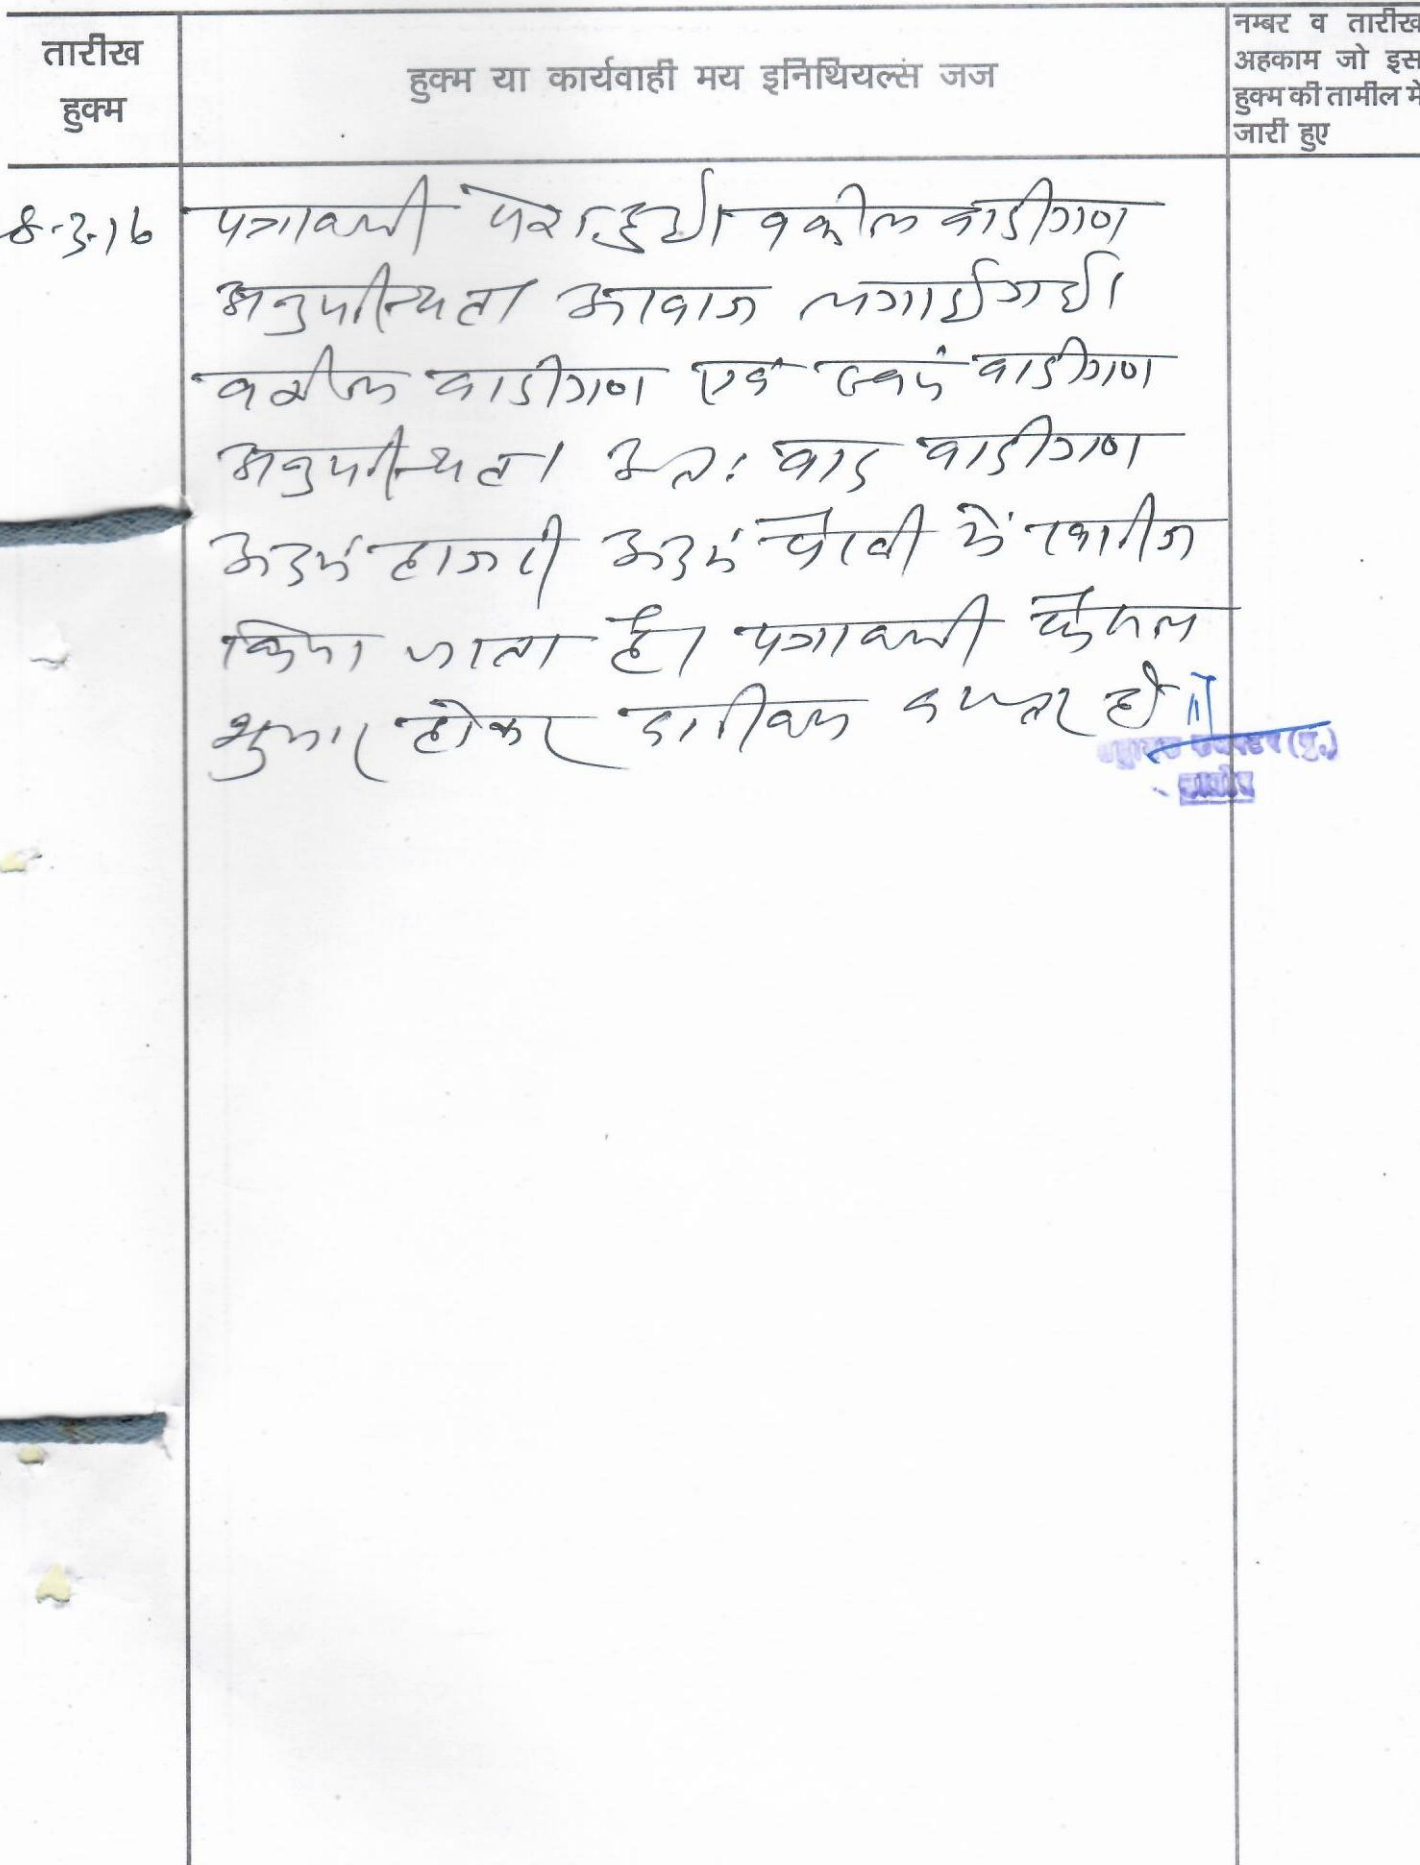 तारीख
हुक्म
हुक्म या कार्यवाही मय इनिथियल्स जज
नम्बर व तारीख
अहकाम जो इस
हुक्म की तामील मे
जारी हुए
8-3-16
पत्रावली पेश हुई। वकील वादीगण
अनुपस्थित। आवाज लगाई गई।
वकील वादीगण एवं स्वयं वादीगण
अनुपस्थित। अतः वाद वादीगण
अदमं हाजरी अदमं पैरवी में खारीज
किया जाता है। पत्रावली फैसल
शुमार होकर दाखिल दफ्तर हो